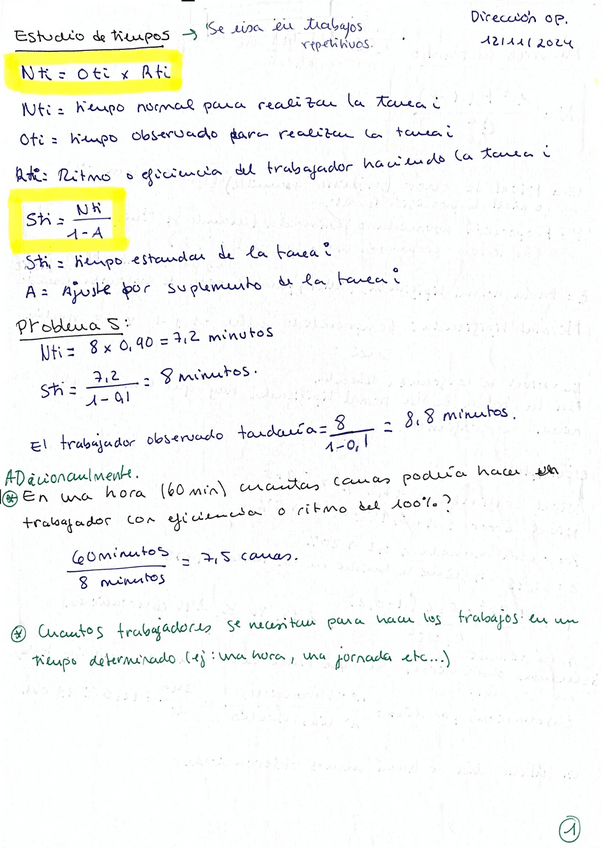 Estudio de tiempos → Se usa en trabajos repetitivos.
Dirección OP.
12/11/2024
Nti = Oti x Rti
Nti = tiempo normal para realizar la tarea i
Oti = tiempo observado para realizar la tarea i
Rti = Ritmo o eficiencia del trabajador haciendo la tarea i
Sti = Nti / 1-A
Sti = tiempo estandar de la tarea i
A = Ajuste por suplemento de la tarea i
Problema 5:
Nti = 8 x 0,90 = 7,2 minutos
Sti = 7,2 / 1-0,1 = 8 minutos.
El trabajador observado tardaría = 8 / 1-0,1 = 8,8 minutos.
ADicionalmente.
* En una hora (60 min) cuantas camas podría hacer un
trabajador con eficiencia o ritmo del 100%?
60 minutos / 8 minutos = 7,5 camas.
* Cuantos trabajadores se necesitan para hacer los trabajos en un
tiempo determinado (ej: una hora, una jornada etc...)
1